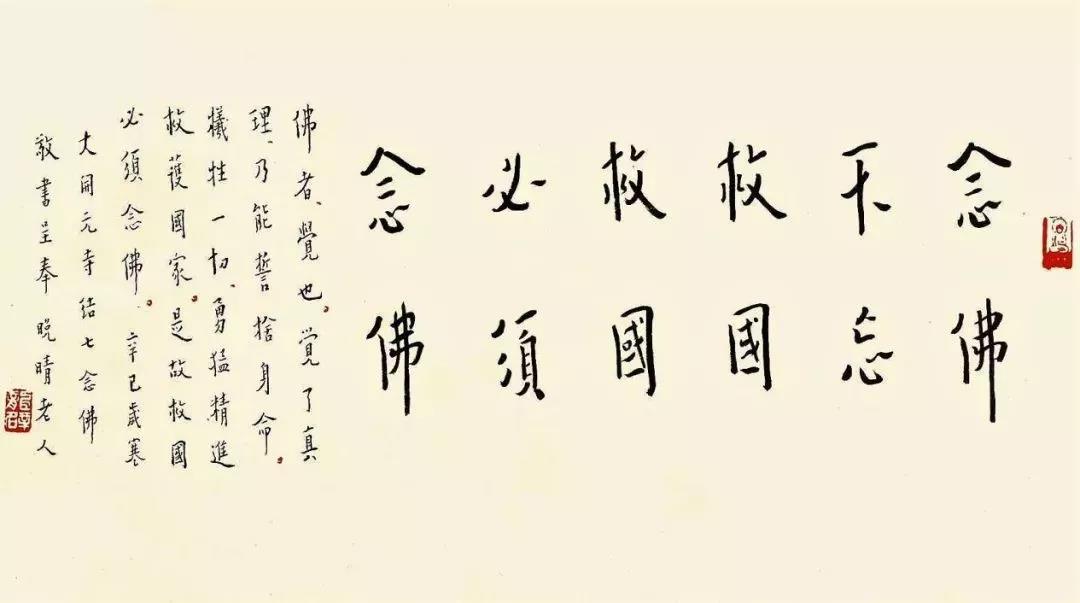 念佛
不忘
救國
救國
必須
念佛
佛者、覺也。覚了真
理、乃能誓捨身命。
犧牲一切、勇猛精進
救護國家。是故救國
必須念佛。辛巳歲寒
大開元寺結七念佛
敬書呈奉 晚晴老人